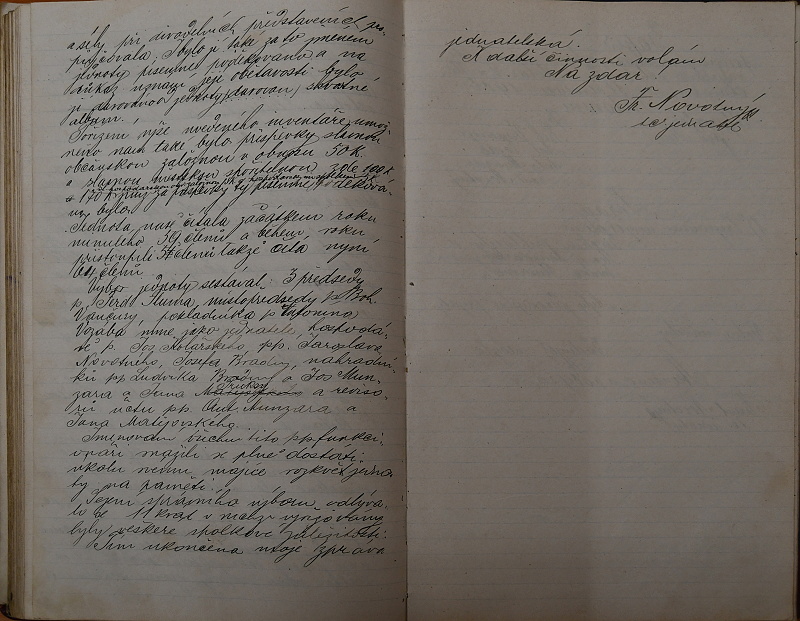 a séby při divadelních představeních pro-
půjčovala. Bylo jí také za to jménem
jednoty písemně poděkováno a na
důkaz uznání její obětavosti bylo
jí darováno jednoty darován skvostné
album.
Pořízení výše uvedeného inventáře umož-
něno nám také bylo příspěvky slavnou
občanskou záložnou v obnosu 50 K.
a slavnou městskou spořitelnou zde 100 K
a 170 K začež za příspěvky tyto písemně poděková-
no bylo.
Jednota naše čítala začátkem roku
minulého 59 členů a během roku
přistoupili členů takže čítá nyní
členů.
Výbor jednoty sestával: z předsedy
p. Ferd. Šluma, místopředsedy p. Boh.
Vančury, pokladníka p. Antonína
Vozába, mne jako jednatele, hospodá-
ře p. Jos. Kolářského, pp. Jaroslava
Novotného, Josefa Bradny, náhradní-
ků pp. Ludvíka a Jos. Mun-
zara a Jana a reviso-
rů účtů pp. Ant. Munzara a
Jana Matějovského.
Jmenovaní všichni tito pp. funkci-
onáři snažili se plně dostáti
úkolu svému majíce rozkvět jedno-
ty na paměti.
Sezení správního výboru odbýva-
lo se 11 krát v nichž vyřizovány
byly veškeré spolkové záležitosti.
Tím ukončena moje zpráva
jednatelská.
K další činnosti volám
Na zdar!
Fr. Novotný
t. č. jednatel